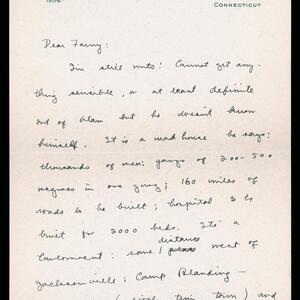 1306
CONNECTICUT
Dear Fanny:
I'm still nuts! Cannot get any-
thing sensible, or at least definite
out of Alan but he doesn't know
himself. It is a mad house he says:
thousands of men; gangs of 200-500
negroes in one gang; 160 miles of
roads to be built; hospital to be
built for 2000 beds. It's a
distance
Cantonment: some west of
Jacksonville; Camp Blanding —
town) and